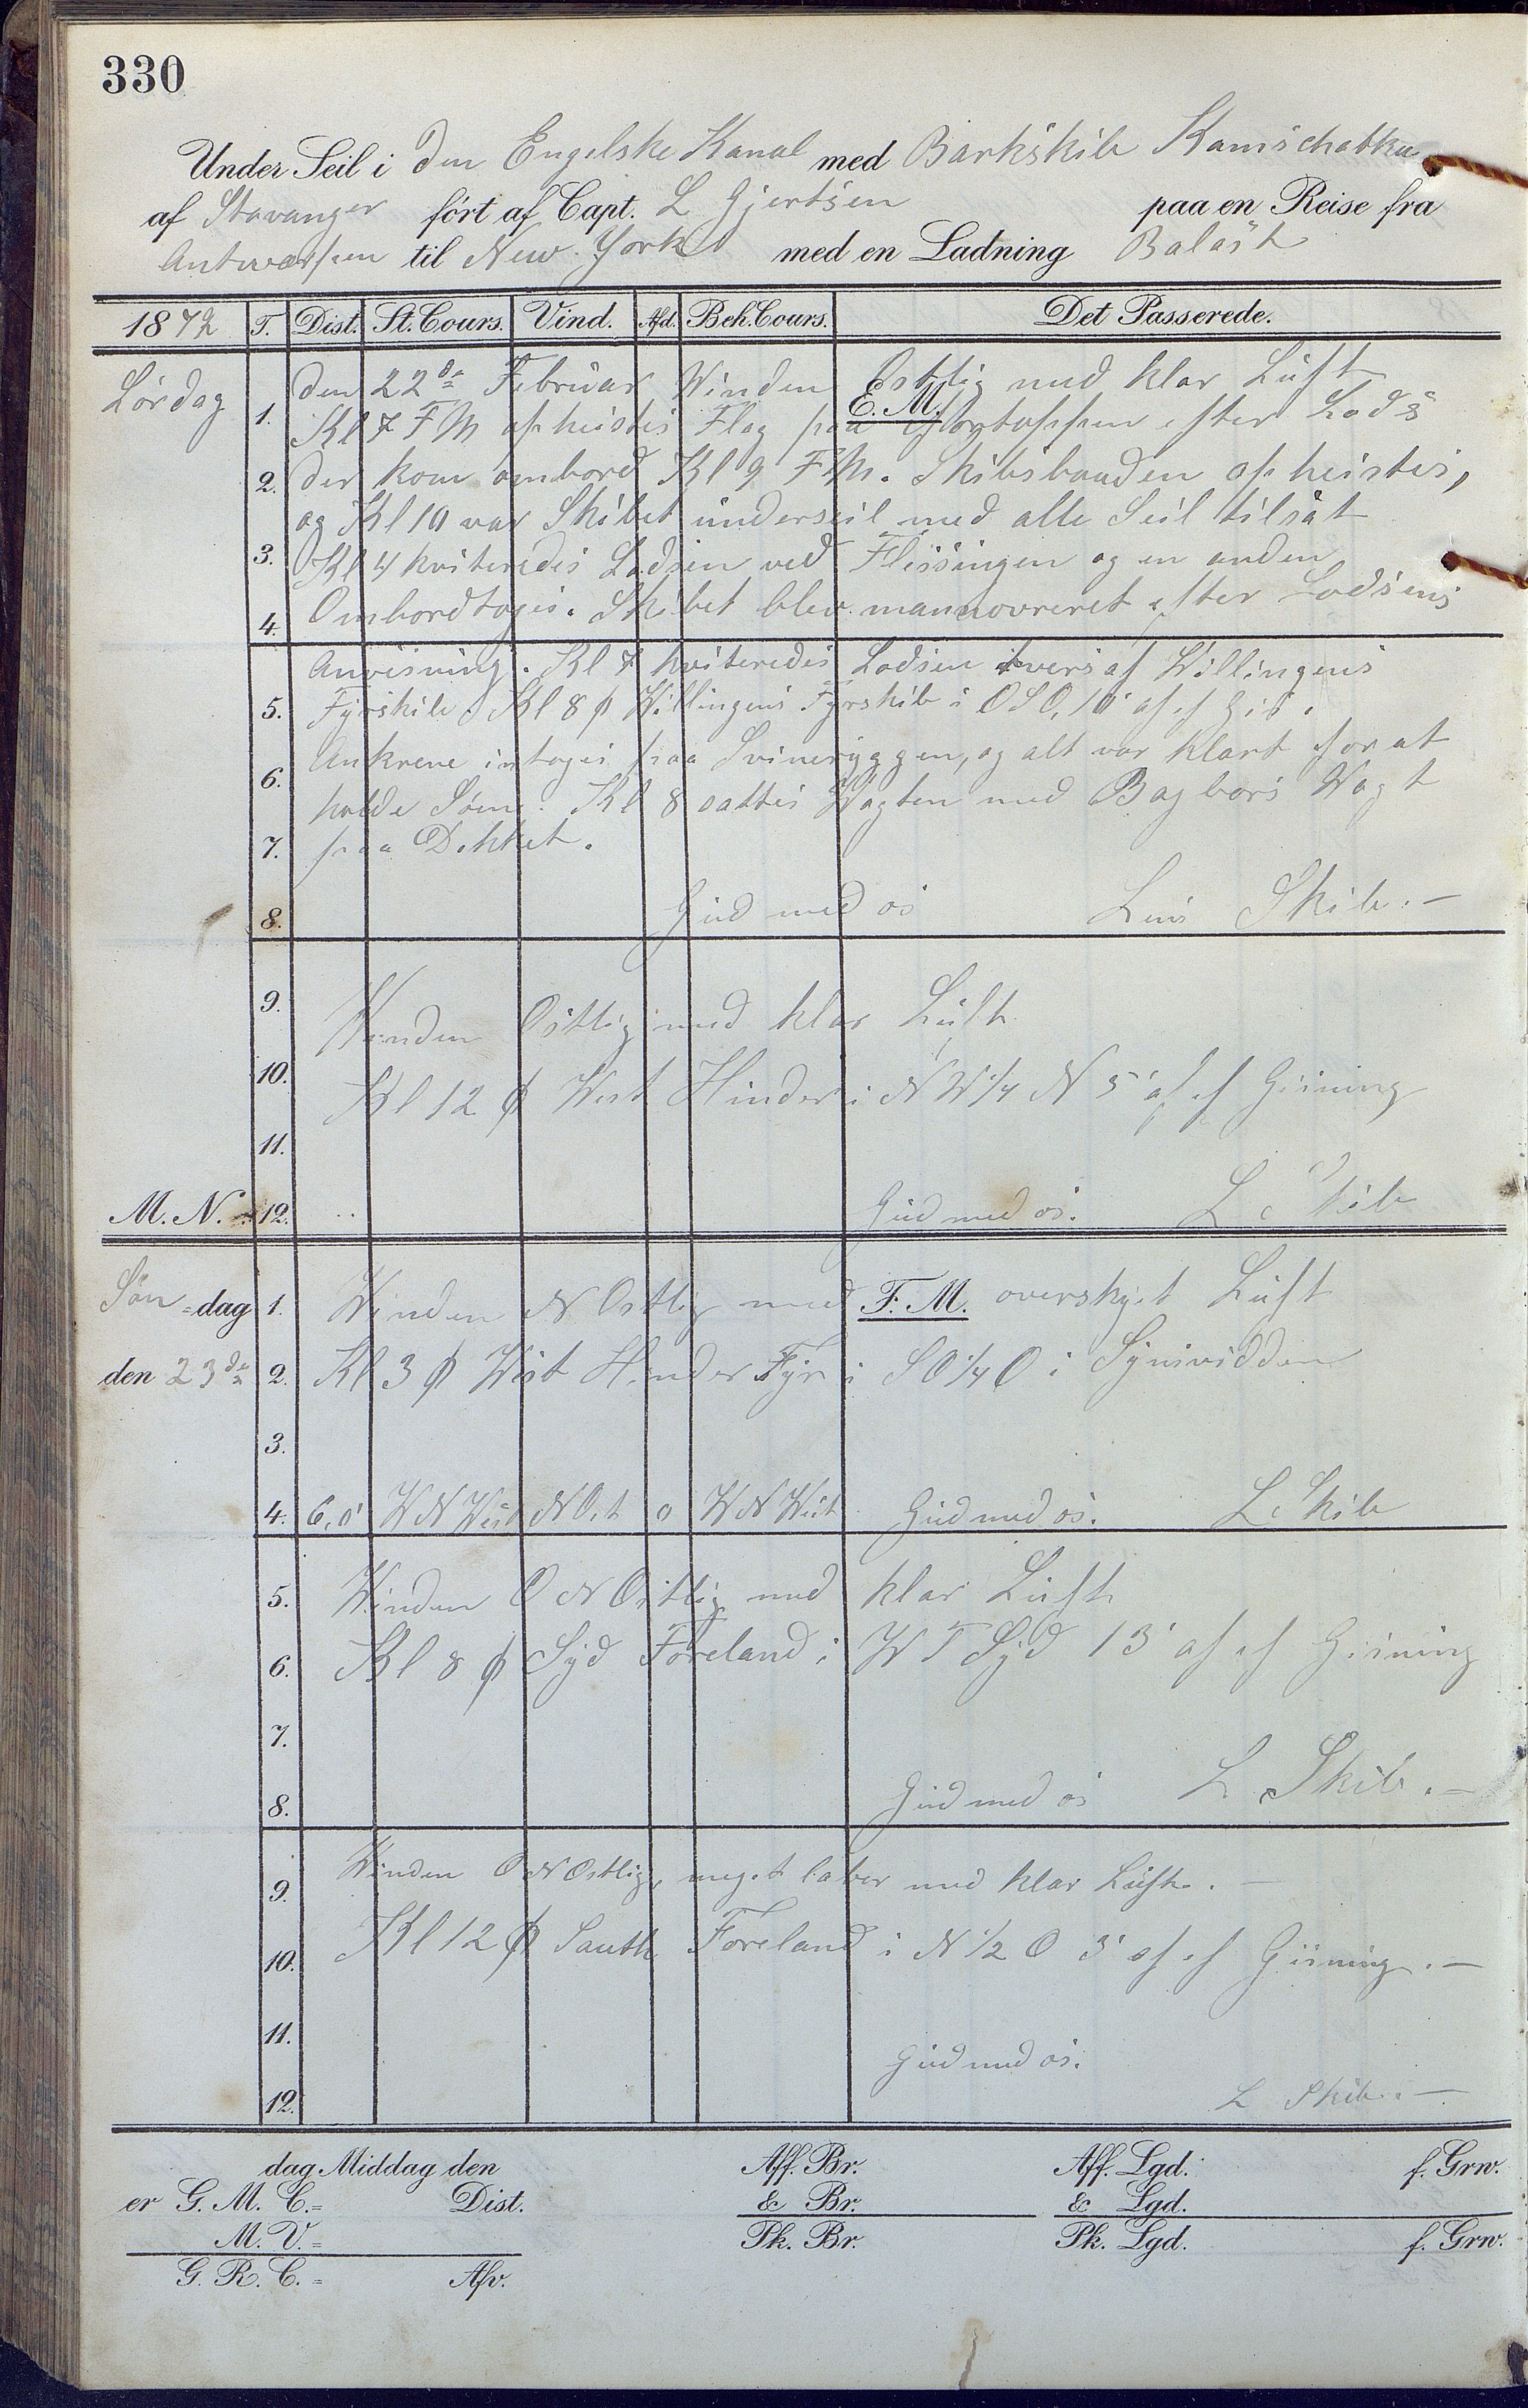 330
Under Seil i den Engelske Kanal med Barkskib Kamschatka
af Stavanger ført af Capt. L Gjertsen paa en Reise fra
Antwerpen til New. York med en Ladning Balast
1879 T. Dist. St. Cours. Vind. Afd. Beh. Cours. Det Passerede.
Lørdag den 22de Februar Winden Ostlig med klar Luft
E. M.
1. Kl 7 F M opheistes Flag paa Fortoppen efter Lods
2. der kom ombord Kl 9 F M. Skibsbaaden opheistes,
og Kl 10 var Skibet underseil med alle Seil tilsat
3. Kl 4 kviteredes Lodsen ved Flissingen og en anden
4. Ombordtoges. Skibet blev mannovreret efter Lodsens
Anvisning. Kl 7 kviteredes Lodsen tvers af Willingens
5. Fyrskib. Kl 8 ϕ Willingens Fyrskib i OSO, 10' af ef Gis.
6. Ankrene intoges paa Svineryggen, og alt var klart for at
holde Søen. Kl 8 sattes Wagten med Bagbors Wagt
7. paa Dekket.
8. Gud med os Lens Skib. —
9. Winden Ostlig med klar Luft
10. Kl 12 ϕ West Hinder i NW 1/4 N 5' af ef Gisning
11.
M. N. 12. Gud med os. L Skib
Søn=dag 1. Winden N Ostlig med F. M. overskyet Luft
den 23de 2. Kl 3 ϕ West Hinder Fyr i SO 1/4 O i Synsvidden
3.
4. 6,0' WN West NOst 0 WN West Gud med os. L Skib
5. Winden O N Ostlig med klar Luft
6. Kl 8 ϕ Syd Foreland i W T Syd 13' af ef Gisning
7.
8. Gud med os L Skib. —
9. Winden O N Ostlig, meget laber med klar Luft. —
10. Kl 12 ϕ South Foreland i N 1/2 O 3' af ef Gisning. —
11. Gud med os.
12. L Skib. —
dag Middag den Aff. Br. Aff. Lgd. f. Grw.
er G. M. C.= Dist. & Br. & Lgd.
M. V.= Pk. Br. Pk. Lgd. f. Grw.
G. R. C.= Afv.